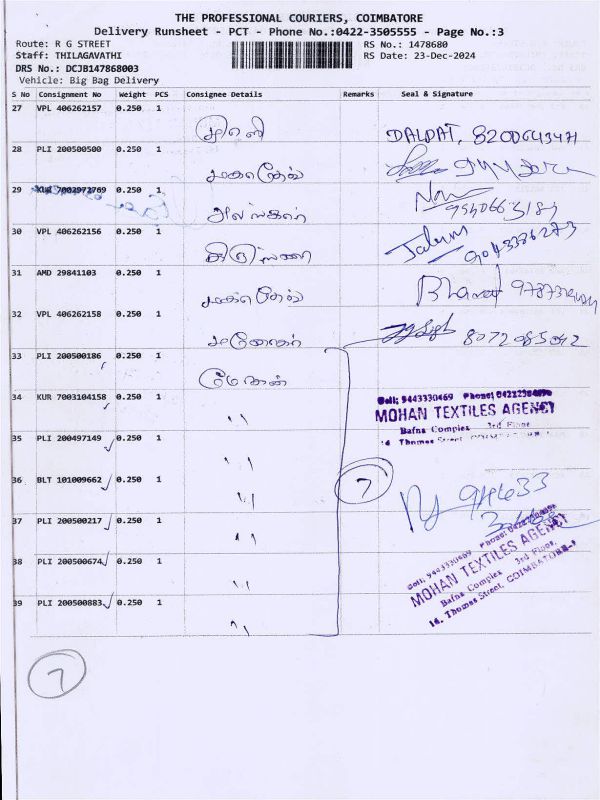 THE PROFESSIONAL COURIERS, COIMBATORE
Delivery Runsheet - PCT - Phone No.:0422-3505555 - Page No.:3
Route: R G STREET RS No.: 1478680
Staff: THILAGAVATHI RS Date: 23-Dec-2024
DRS No.: DCJB147868003
Vehicle: Big Bag Delivery
S No Consignment No Weight PCS Consignee Details Remarks Seal & Signature
27 VPL 406262157 0.250 1
DALPAT, 8200643471
28 PLI 200500500 0.250 1
மகாதேவ்
29 KUR 7002972769 0.250 1
30 VPL 406262156 0.250 1
31 AMD 29841103 0.250 1
மகாதேவ் Bharat
32 VPL 406262158 0.250 1
மனோகர் 8072985042
33 PLI 200500186 0.250 1
மோகன்
34 KUR 7003104158 0.250 1
Cell: 9443330469 Phone: 04222304898
MOHAN TEXTILES AGENCY
Bafna Complex 3rd Floor
14 Thomas Street,
35 PLI 200497149 0.250 1
36 BLT 101009662 0.250 1
7
37 PLI 200500217 0.250 1
38 PLI 200500674 0.250 1
39 PLI 200500883 0.250 1
Cell: 9443330469 Phone:
MOHAN TEXTILES AGENCY
Bafna Complex 3rd Floor,
14, Thomas Street, COIMBATORE-1
7